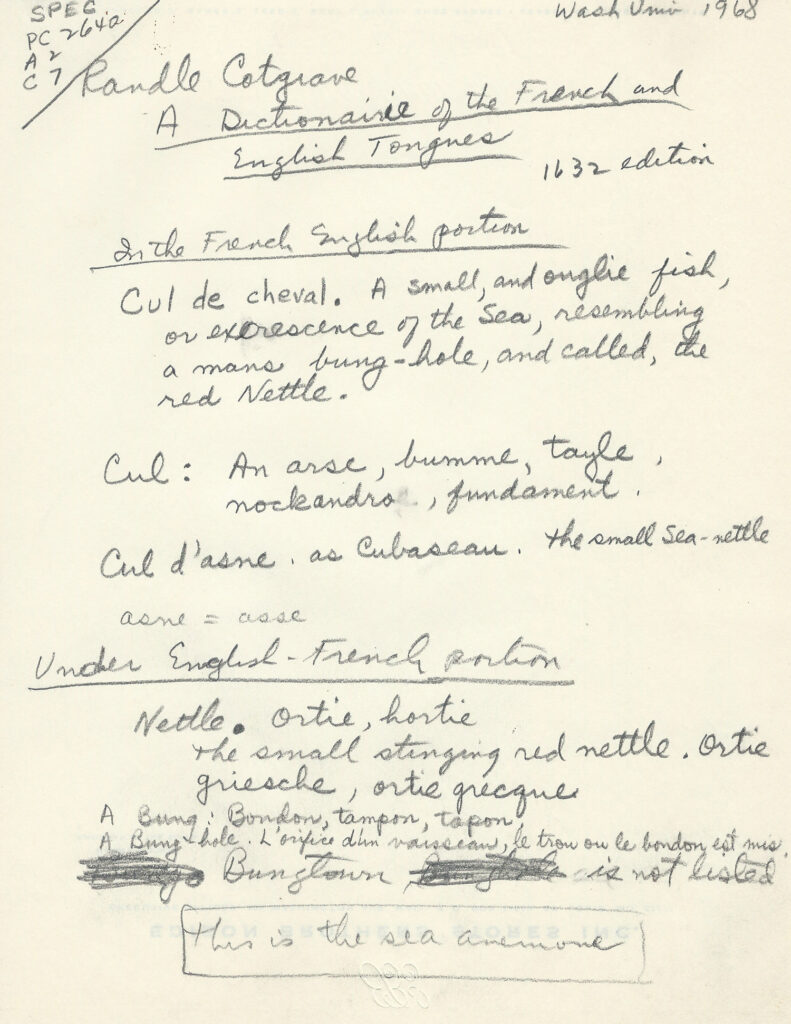 SPEC
PC 2640
A2
C7
Wash Univ 1968
Randle Cotgrave
A Dictionairie of the French and
English Tongues
1632 edition
In the French English portion
Cul de cheval. A small, and ouglie fish,
or excrescence of the Sea, resembling
a mans bung-hole, and called, the
red Nettle.
Cul: An arse, bumme, tayle,
nockandro, fundament.
Cul d'asne. as Cubaseau. the small Sea-nettle
asne = asse
Under English-French portion
Nettle. Ortie, hortie
the small stinging red nettle. Ortie
griesche, ortie grecque
A Bung: Bondon, tampon, tapon.
A Bung-hole. L'orifice d'un vaisseau, le trou ou le bondon est mis.
Bungtown is not listed
This is the sea anemone
EDISON BROTHERS STORES INC.